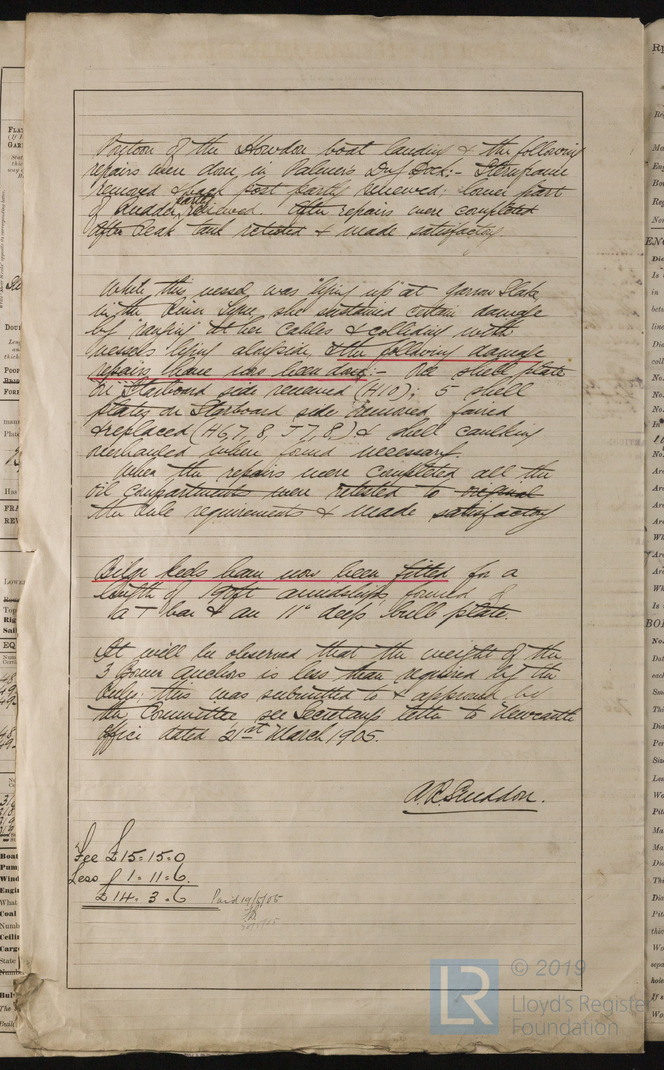 Pontoon of the Howdon boat landing & the following
repairs were done in Palmers Dry Dock:- Sternframe
removed & back post partly renewed; lower part
of Rudder partly renewed. After repairs were completed
After Peak tank retested & made satisfactory
While this vessel was lying up at Jarrow Slake
in the River Tyne, she sustained certain damage
by ranging at her Cables & colliding with
vessels lying alongside, & the following damage
repairs have now been done:- One shell plate
on Starboard side renewed (H10); 5 shell
plates on Starboard side removed, faired
& replaced (H6,7,8, J7,8.) & shell caulking
overhauled where found necessary.
When the repairs were completed all the
oil compartments were retested to original
the Rule requirements & made satisfactory
Bilge keels have now been fitted for a
length of feet amidships, formed of
a T bar & an 11" deep bulb plate.
It will be observed that the weight of the
3 Bower Anchors is less than required by the
Rules: this was submitted to & approved by
the Committee, see Secretary's letter to Newcastle
Office dated 21st March 1905.
Fee £15=15=0
Less £1=11=6.
£14=3=6 Paid 19/5/05
LR © 2019
Lloyd's Register
Foundation